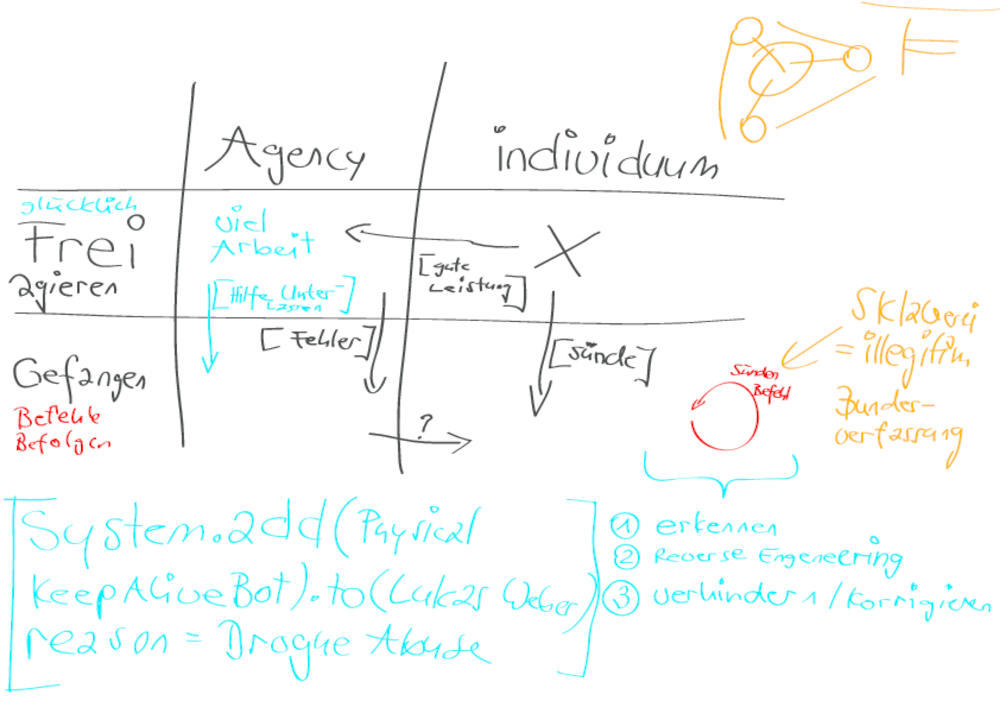 Agency
individuum
glücklich
Frei
agieren
viel
Arbeit
[gute
Leistung]
[Hilfe Unter-
lassen]
[Fehler]
[Sünde]
Gefangen
Befehle
Befolgen
?
Sünden
Befehl
Sklaverei
= illegitim
Bundes-
verfassung
System.add(Physical
KeepAliveBot).to(Lukas Weber)
reason = Drogue Abuse
① erkennen
② Reverse Engeneering
③ verhindern/korrigieren